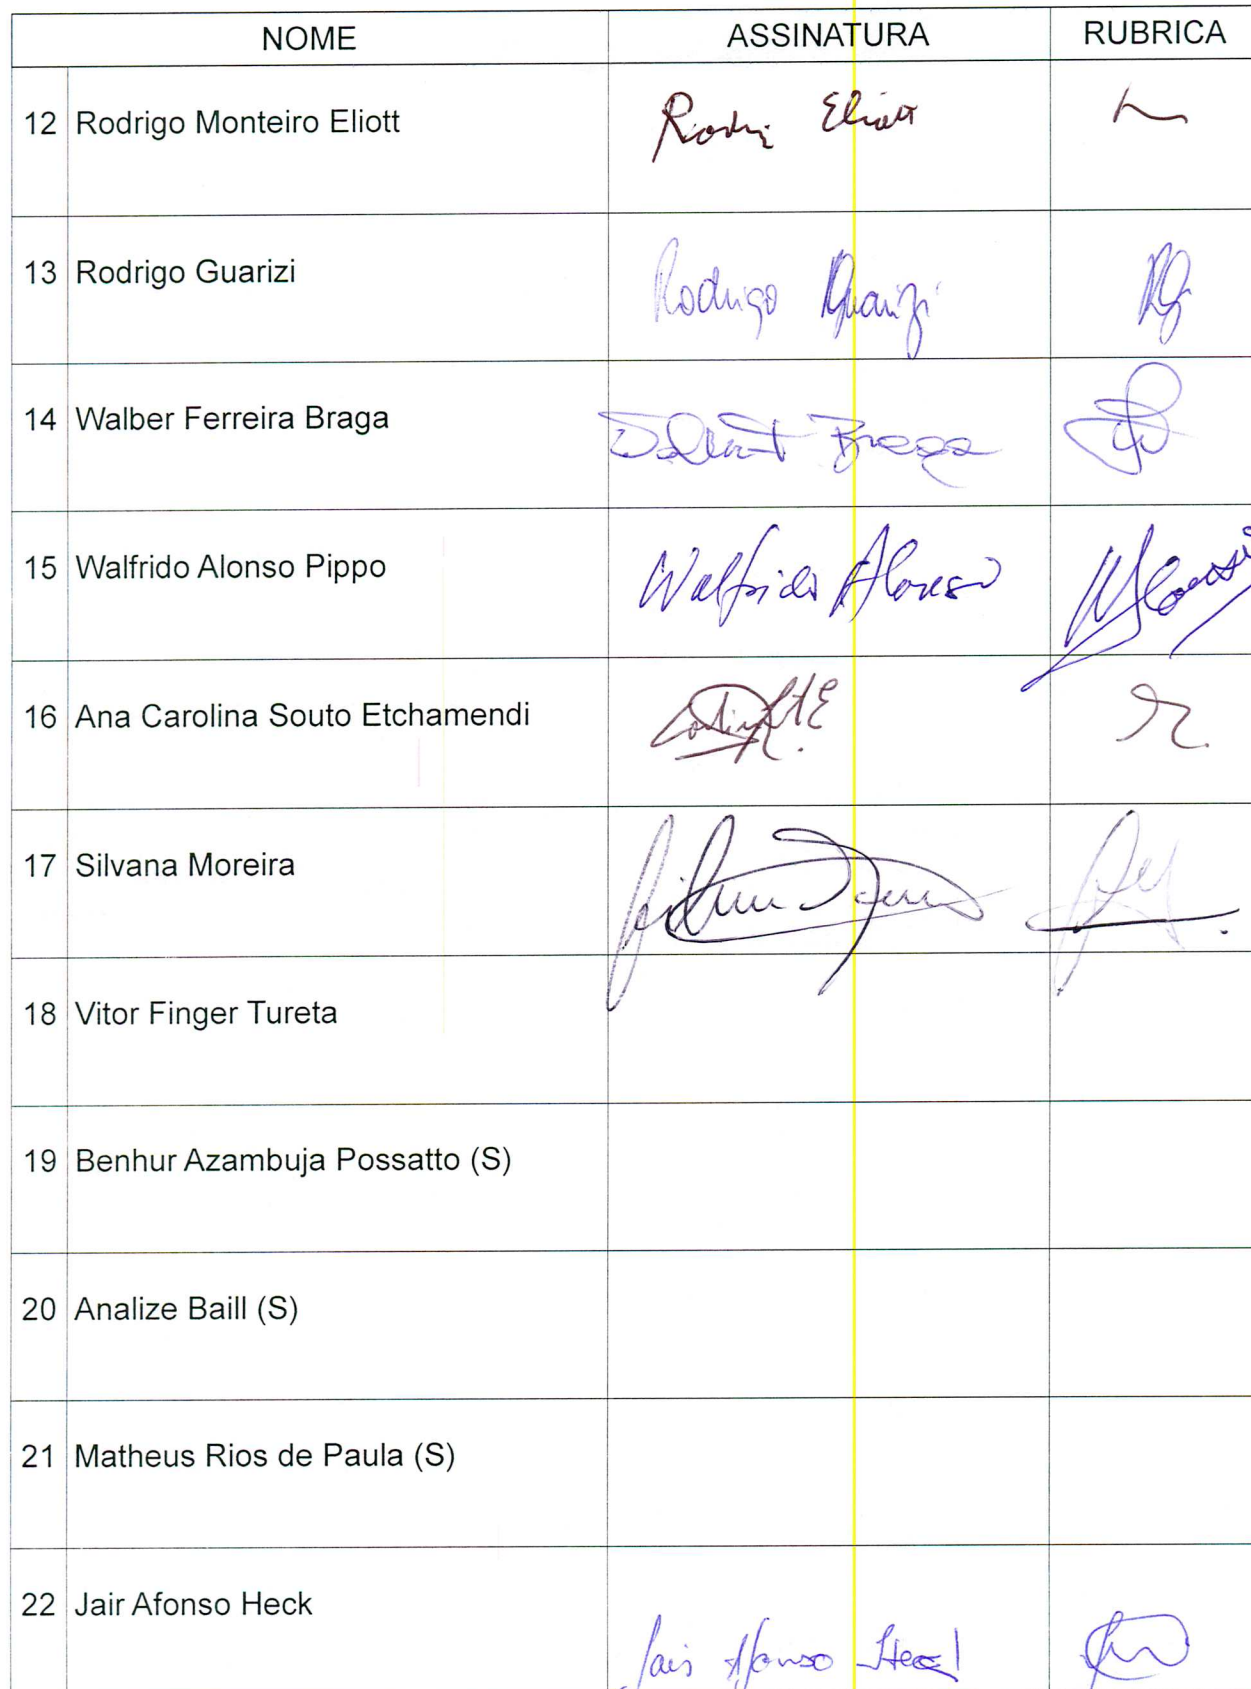 NOME ASSINATURA RUBRICA
12 Rodrigo Monteiro Eliott Eliott
13 Rodrigo Guarizi Rodrigo Guarizi RG
14 Walber Ferreira Braga Braga
15 Walfrido Alonso Pippo Walfrido Alonso
16 Ana Carolina Souto Etchamendi
17 Silvana Moreira
18 Vitor Finger Tureta
19 Benhur Azambuja Possatto (S)
20 Analize Baill (S)
21 Matheus Rios de Paula (S)
22 Jair Afonso Heck Jair Afonso Heck